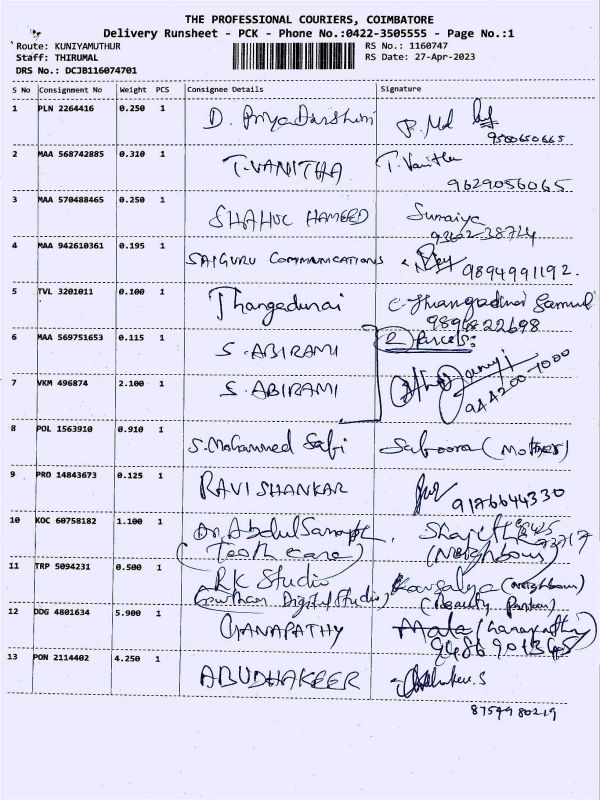 THE PROFESSIONAL COURIERS, COIMBATORE
Delivery Runsheet - PCK - Phone No.:0422-3505555 - Page No.:1
Route: KUNIYAMUTHUR RS No.: 1160747
Staff: THIRUMAL RS Date: 27-Apr-2023
DRS No.: DCJB116074701
S No Consignment No Weight PCS Consignee Details Signature
1 PLN 2264416 0.250 1 D. Priya Darshini
9500650665
2 MAA 568742885 0.310 1 T.VANITHA T. Vanitha
9629056065
3 MAA 570488465 0.250 1 SHAHUL HAMEED Sumaiya
4 MAA 942610361 0.195 1 SAIGURU COMMUNICATIONS
9894991192.
5 TVL 3201011 0.100 1 Thangadurai C. Thangadurai Samuel
9894822698
6 MAA 569751653 0.115 1 S. ABIRAMI 2 Parcels:
7 VKM 496874 2.100 1 S. ABIRAMI
944200-1000
8 POL 1563910 0.910 1 S. Mohammed Safi Saboora (Mother)
9 PRO 14843673 0.125 1 RAVI SHANKAR
9176644330
10 KOC 60758182 1.100 1 Dr. Abdul
(Tooth care) (Neighbour)
11 TRP 5094231 0.500 1 RK Studio Kowsalya (neighbour)
Gowtham Digital Studio, (Beauty Parlour)
12 DDG 4801634 5.900 1 GANAPATHY Mala (Ganapathy)
13 PON 2114402 4.250 1 ABUDHAKEER
8754980219